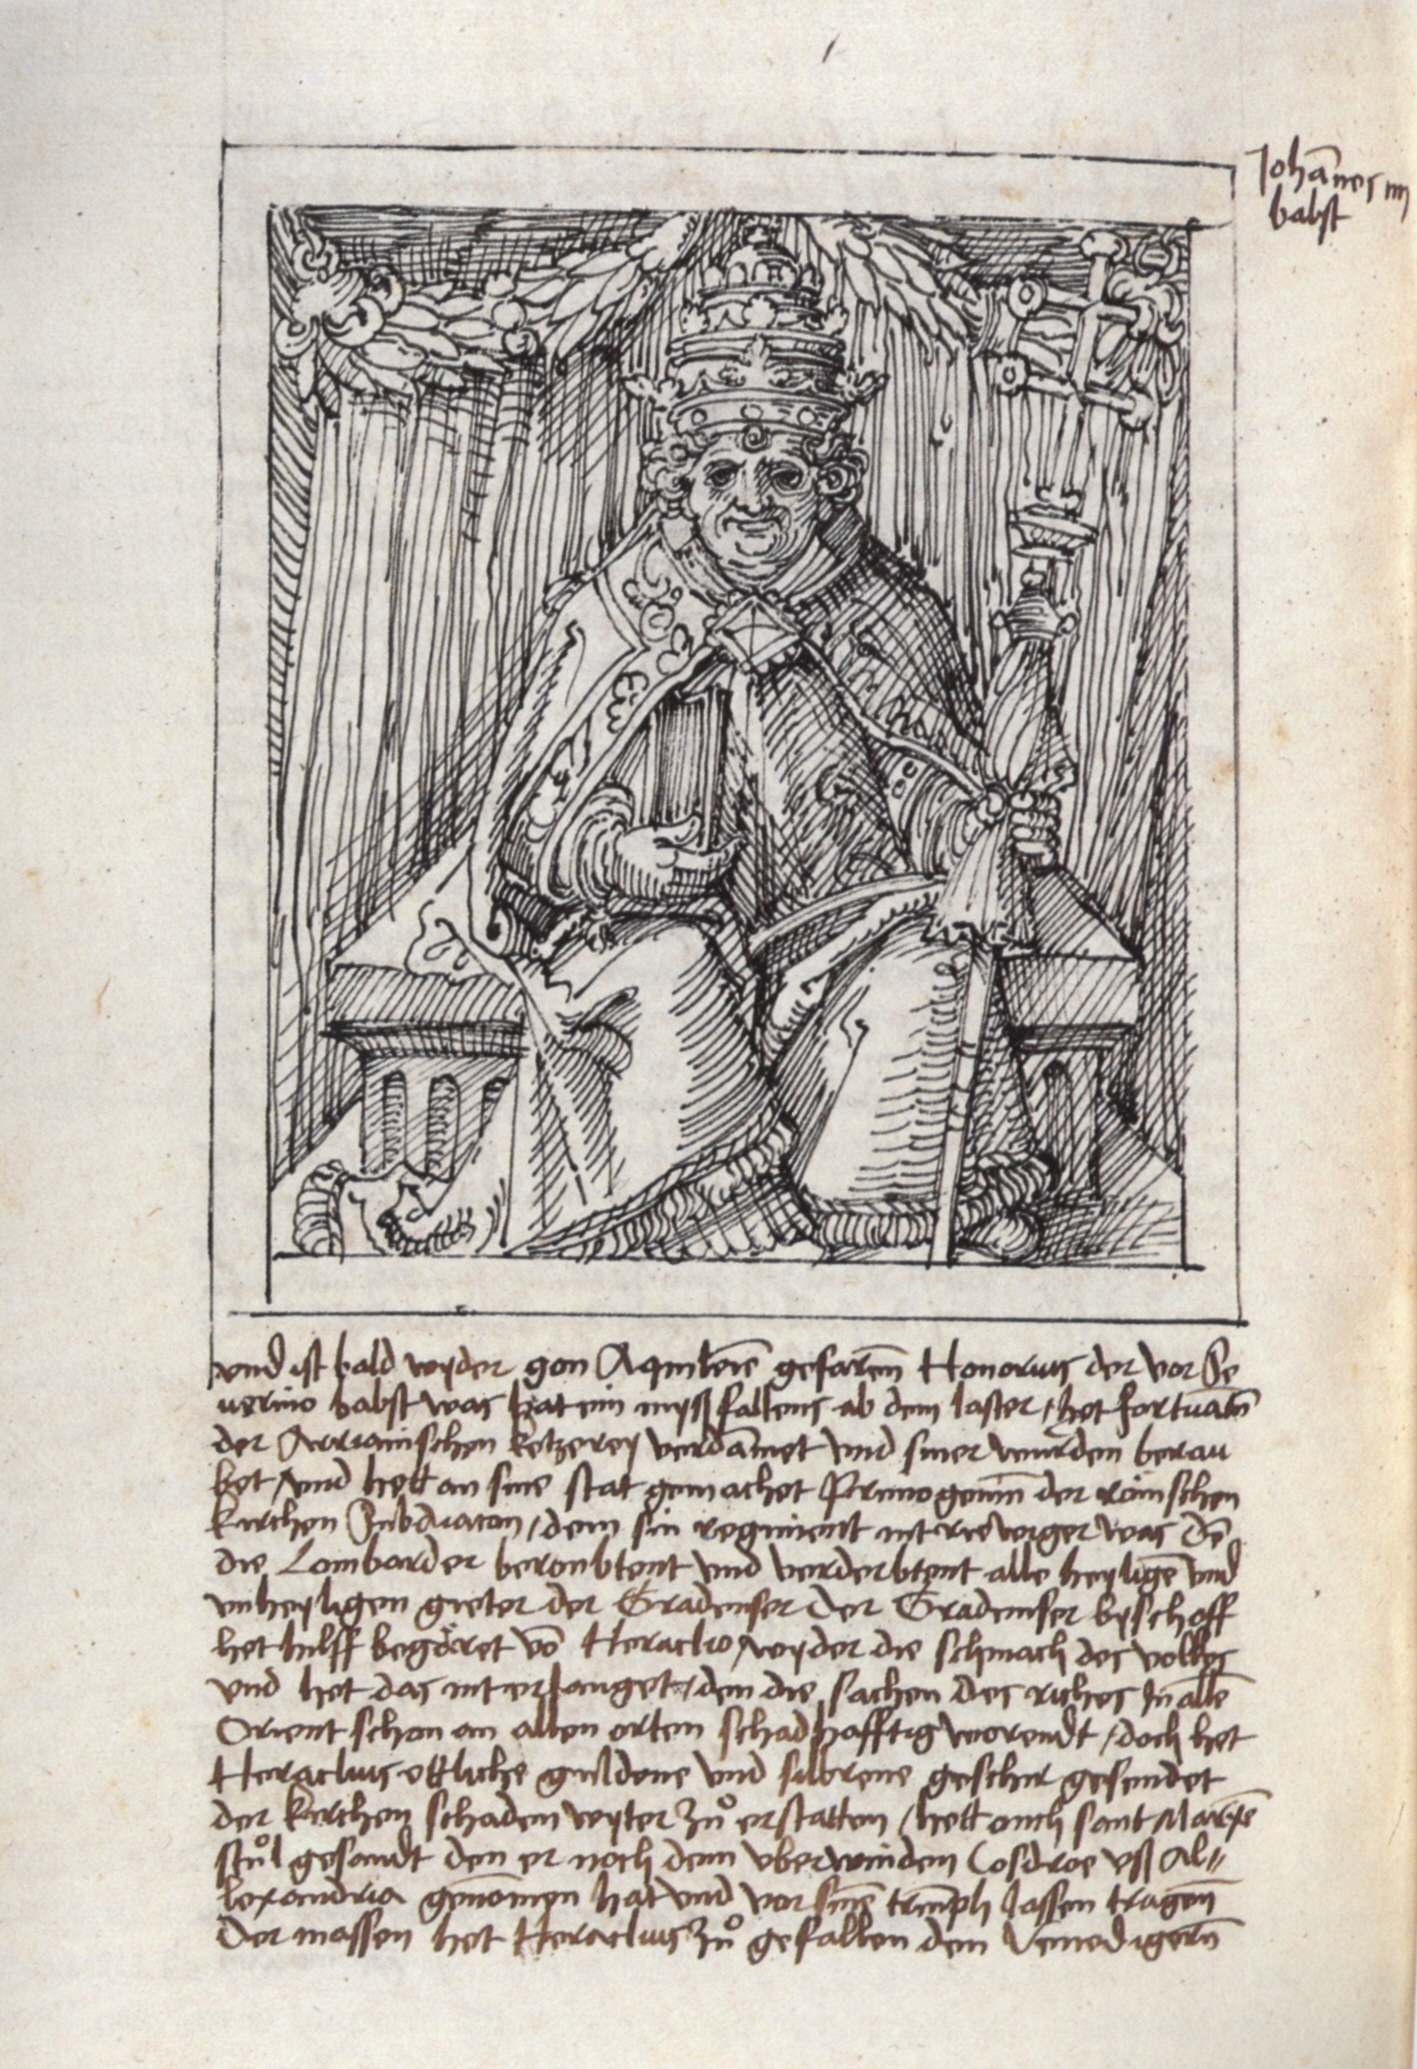 Johānes iiij
babst
vnd ist bald wyder gon Aquileiē gefarēn Honorius der vor Se
uerino babst was hat ein myßfallens ab dem laster / het fortunatū
der Arrianischen ketzerey verdāmet vnd siner wurden berau
bet / vnd hett an sine stat gemachet Primogeniū der römischen
kirchen Subdiacon / dem sin regiment nit rieweger was Dē
die Lombarder beroubtent vnd verderbtent alle heyligē vnd
vnheyligen gieter der Gradenser Der Gradenser byschoff
het hilff begäret vō Heraclio / wyder die schmach des volkes
vnd het das nit erlanget / den die sachen des riches jn allē
Orient schon an allen orten schadhafftig worendt / doch het
Heraclius ettliche guldene vnd silbrene geschir gesendet
der kirchen schaden wyter zů erstatten / hett ouch sant Marxē
stůl gesandt den er noch dem vberwinden Cosdroe vß Al〃
lexandria genomen hat vnd vor sinē triūmph lassen tragen
Der massen het Heraclius zů gefallen den Venedigern